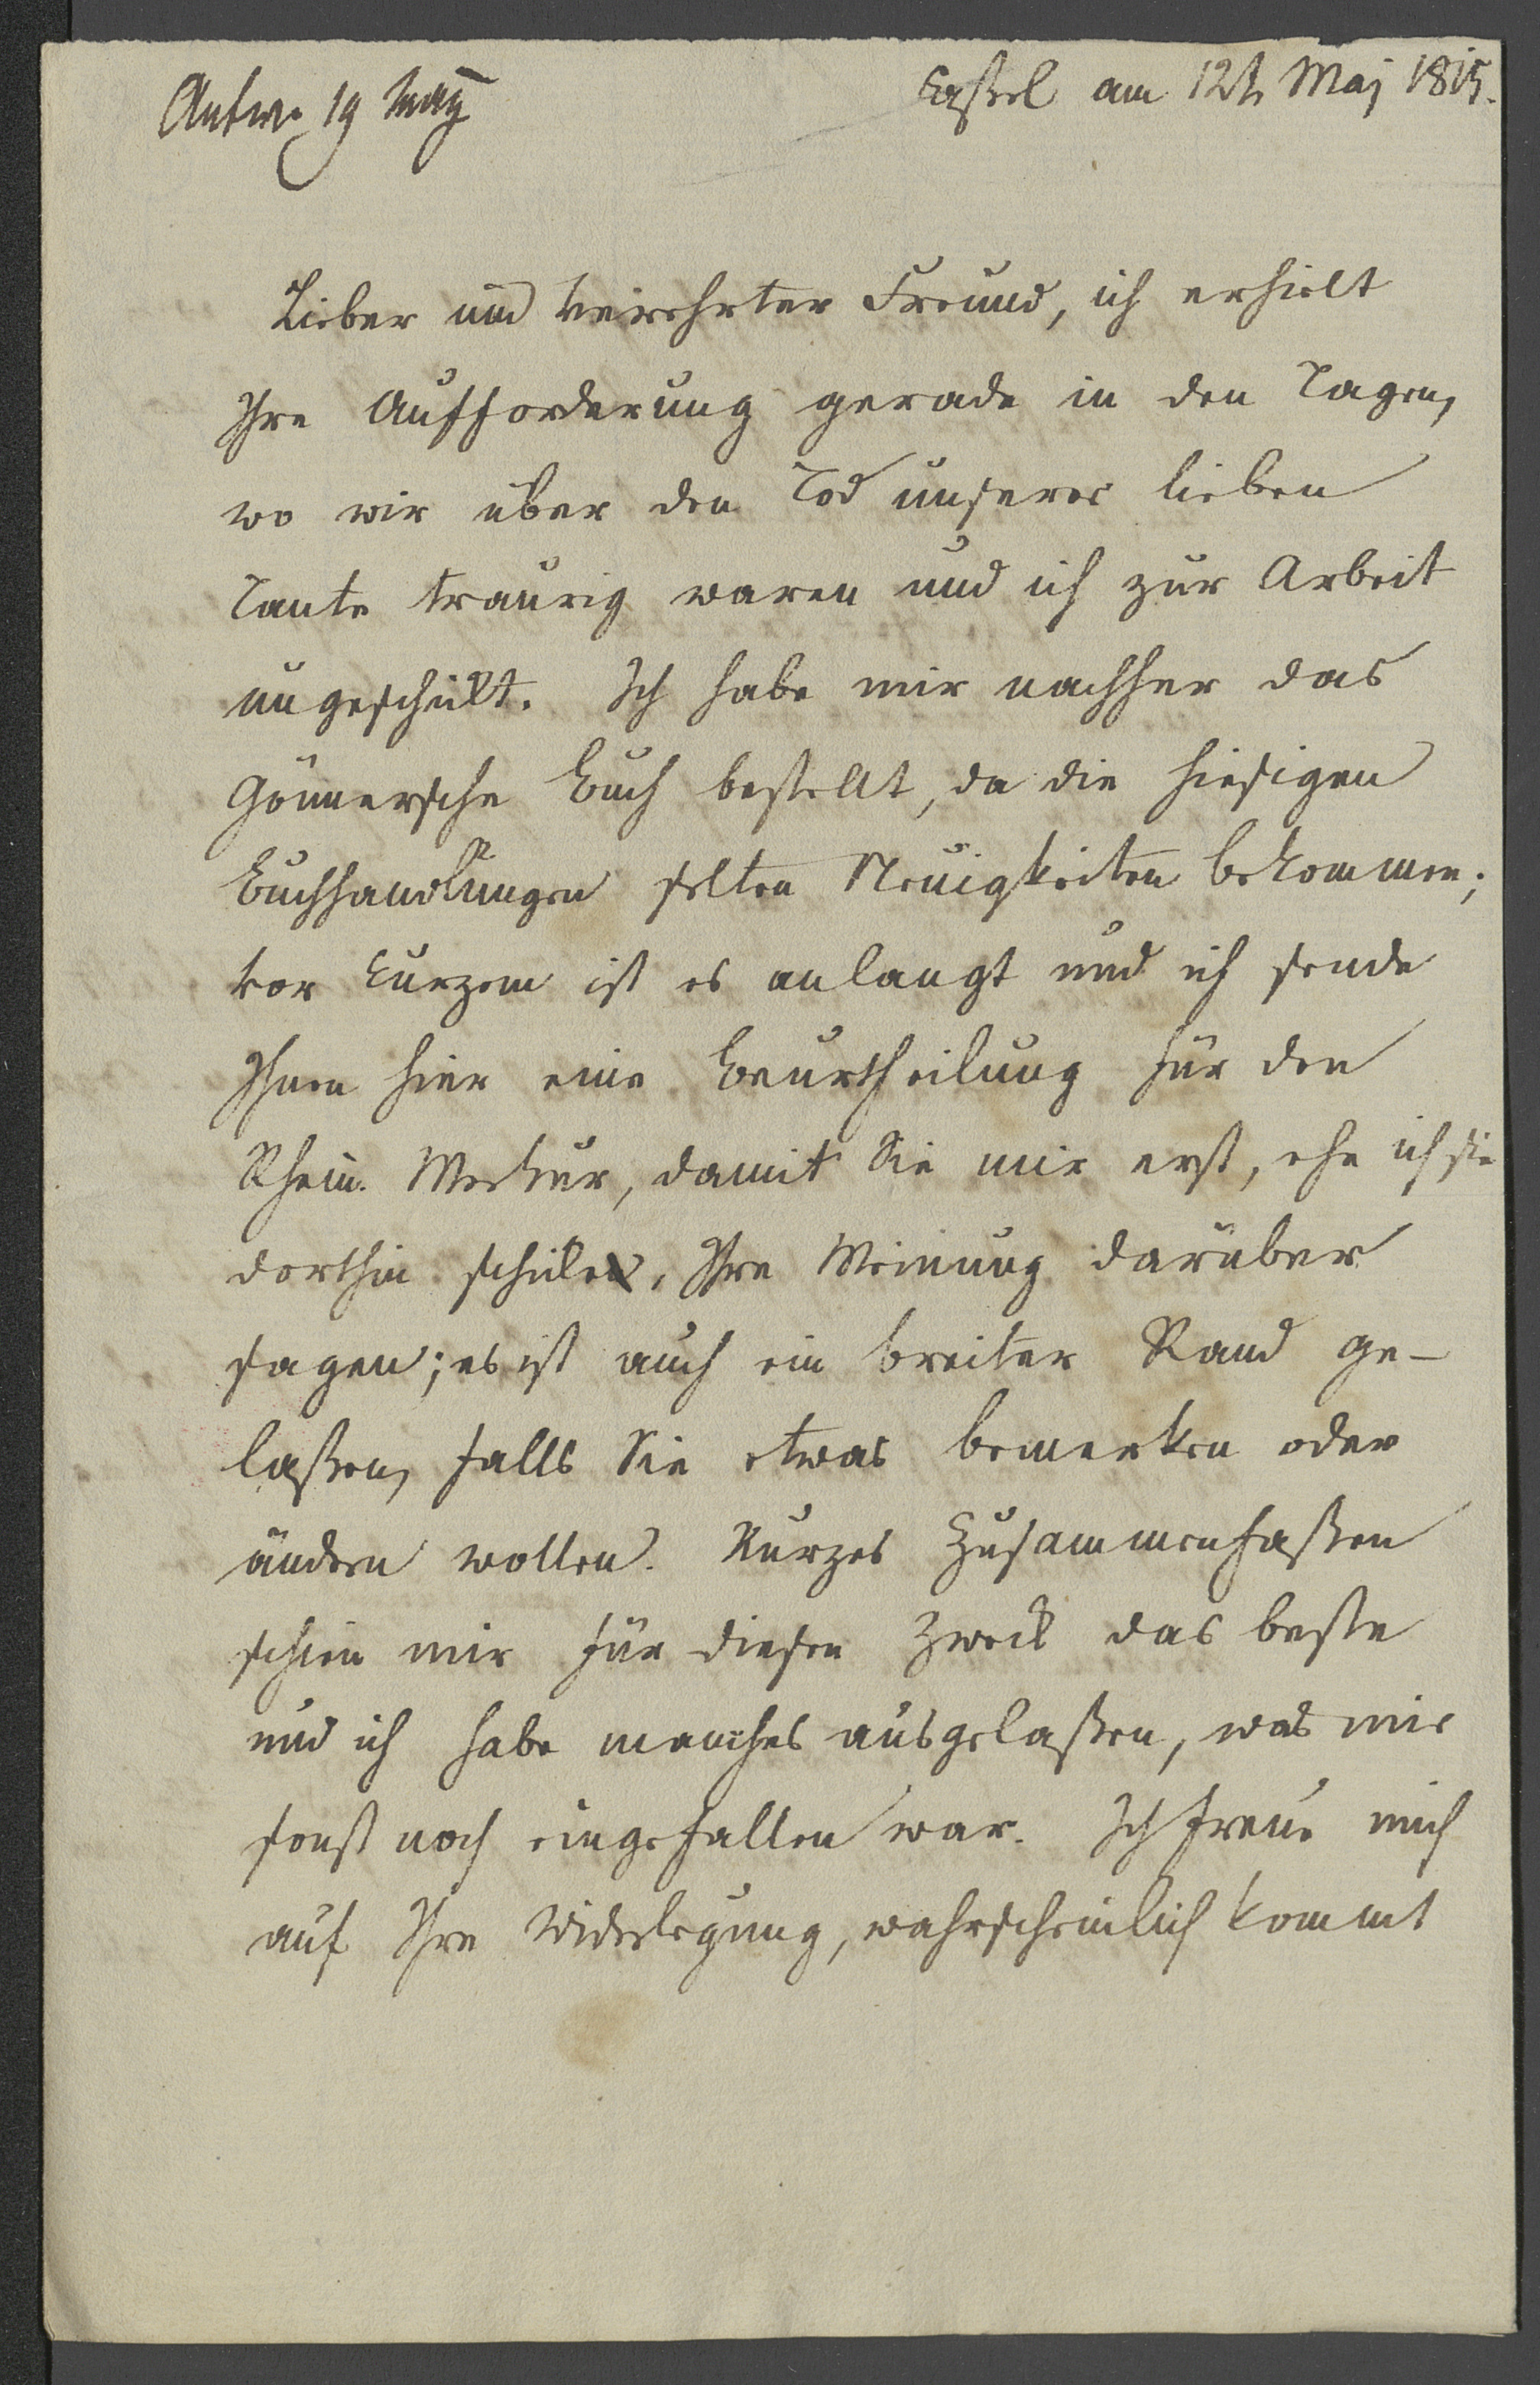 Antw. 19 May
Caßel am 12t Maj 1815.
Lieber und verehrter Freund, ich erhielt
Ihre Aufforderung gerade in den Tagen,
wo wir über den Tod unserer lieben
Tante traurig waren und ich zur Arbeit
ungeschickt. Ich habe mir nachher das
Gönnersche Buch bestellt, da die hiesigen
Buchhandlungen selten Neuigkeiten bekommen;
vor kurzem ist es anlangt und ich sende
Ihnen hier eine Beurtheilung für den
Rhein. Merkur, damit Sie mir erst, ehe ich sie
dorthin schicke, Ihre Meinung darüber
sagen; es ist auch ein breiter Rand ge-
laßen, falls Sie etwas bemerken oder
ändern wollen. Kurzes Zusammenfaßen
schien mir für diesen Zweck das beste
und ich habe manches ausgelaßen, was mir
sonst noch eingefallen war. Ich freue mich
auf Ihre Widerlegung, wahrscheinlich kommt